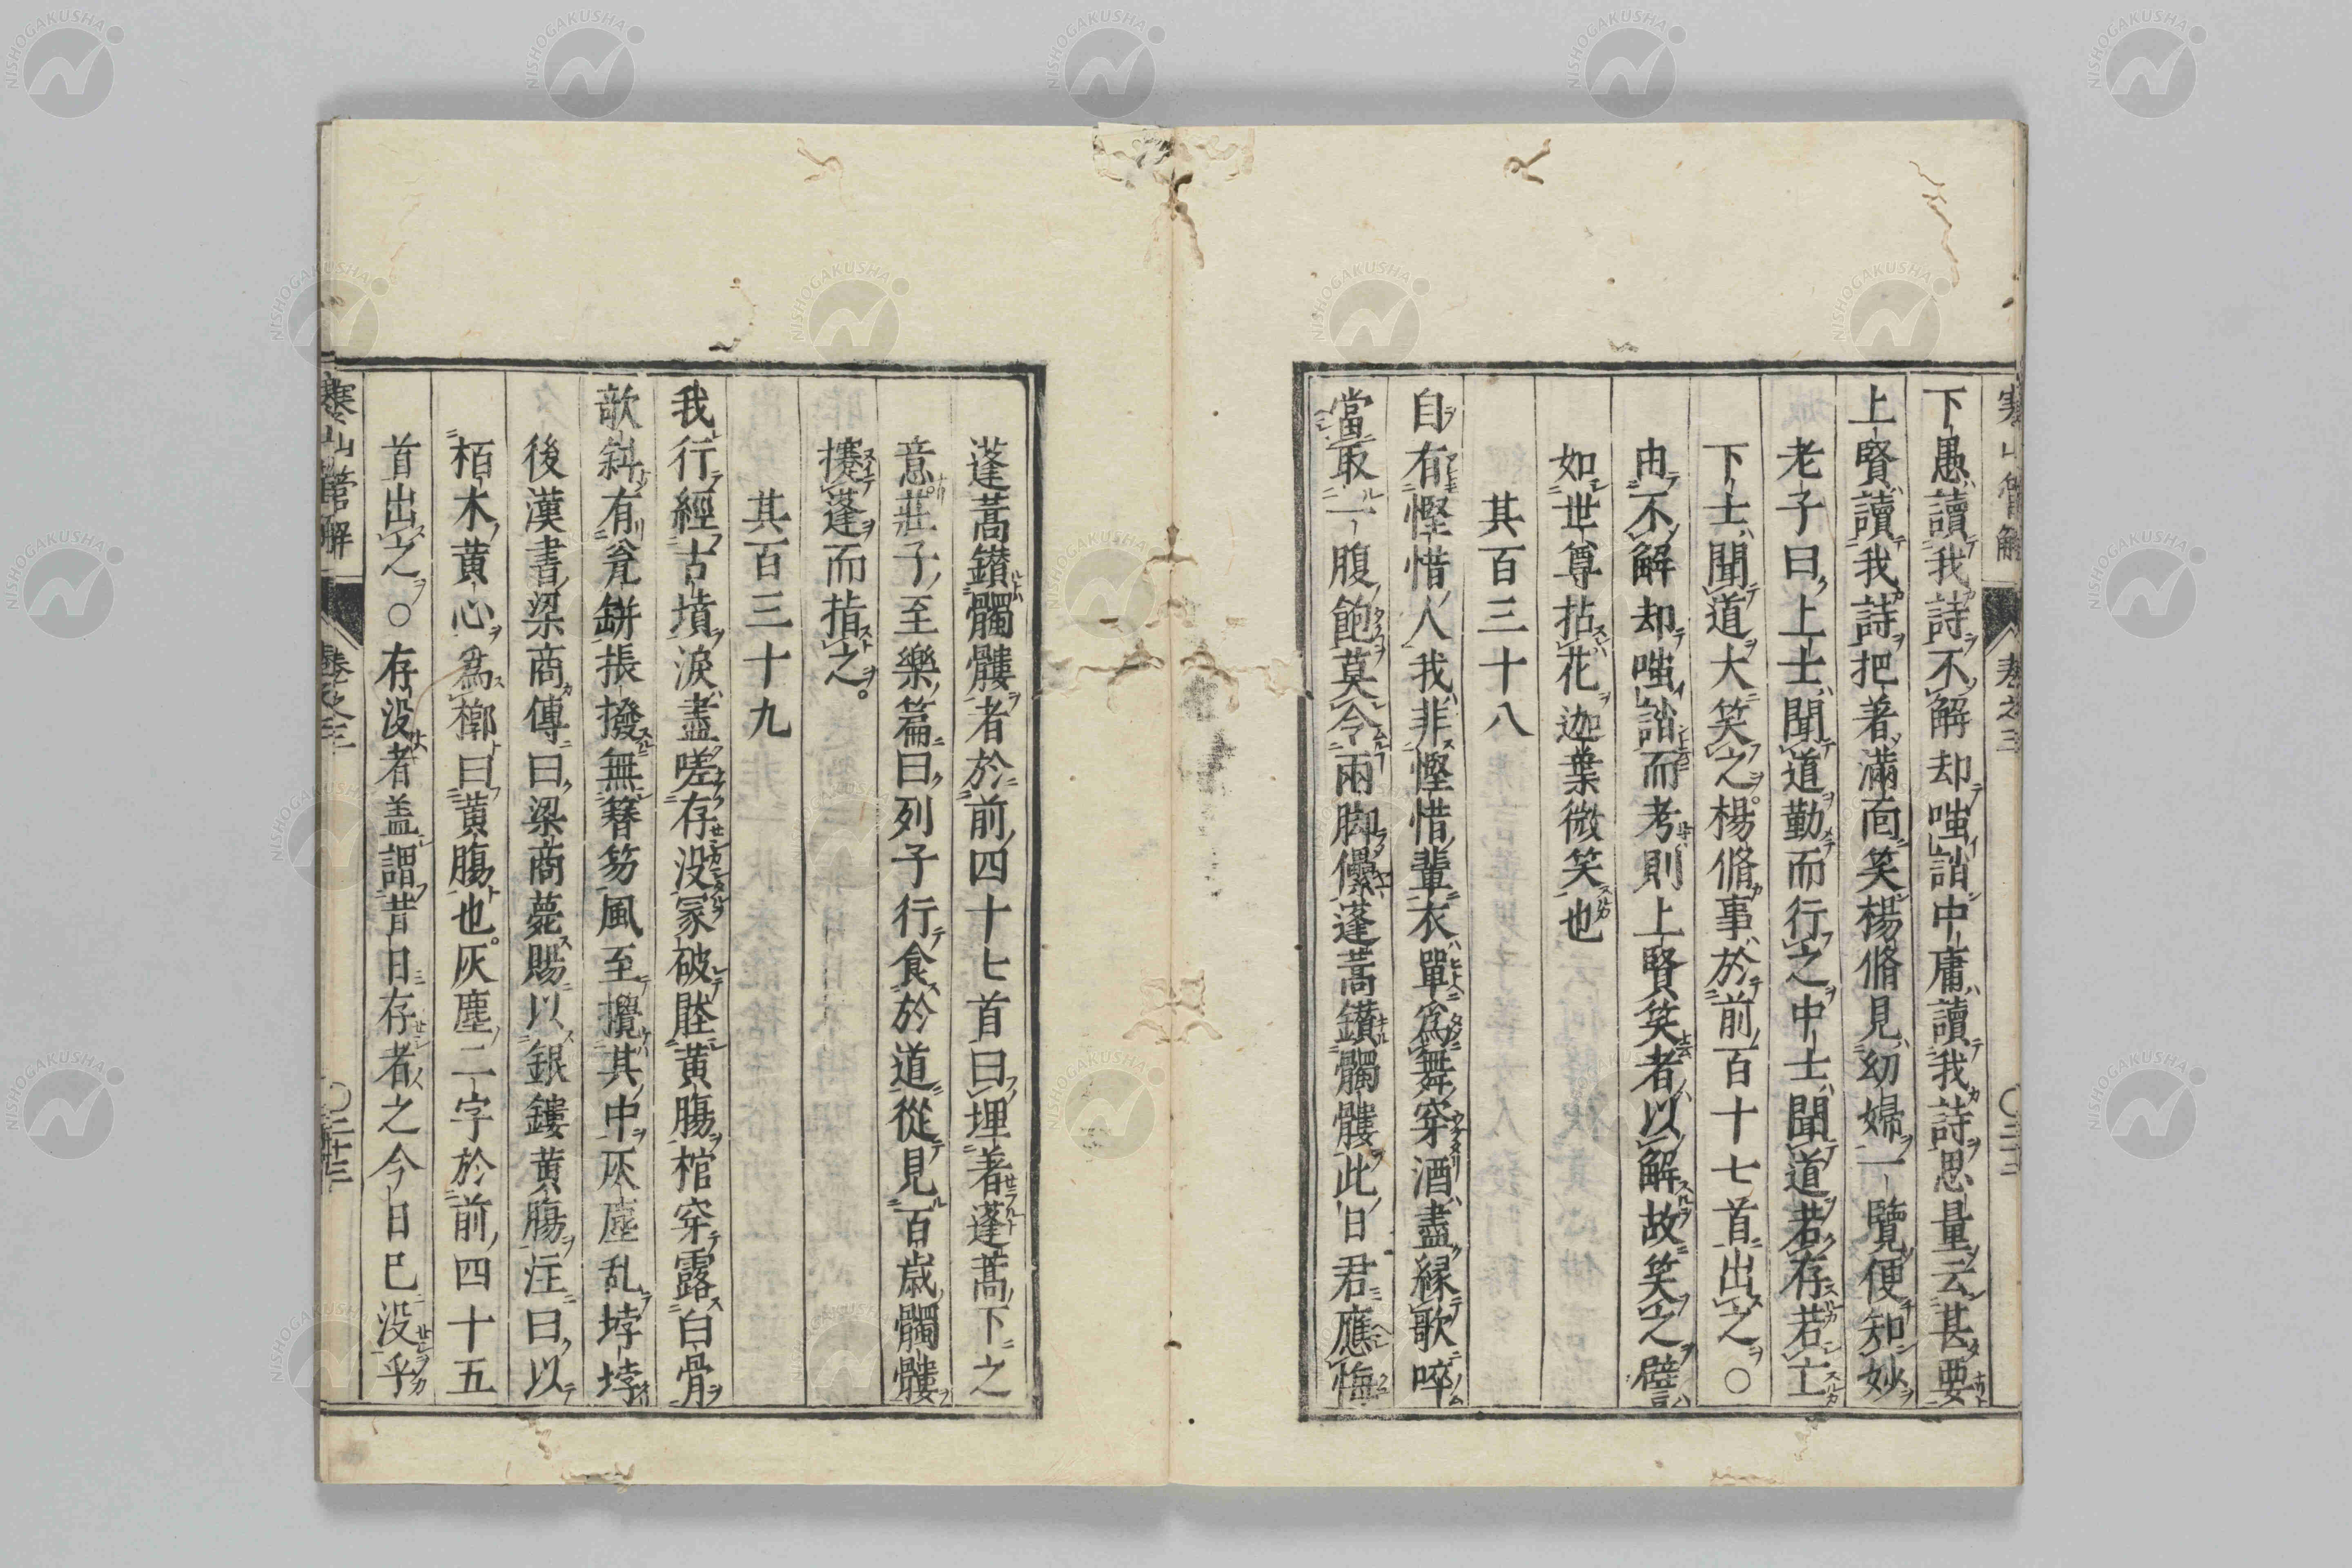 下愚讀我詩不解却嗤誚中庸讀我詩思量云甚要
上賢讀我詩把著滿面笑楊脩見幼婦一覽便知妙
老子曰上士聞道勤而行之中士聞道若存若亡
下士聞道大笑之楊脩事於前百十七首出之○
由不解却嗤誚而考則上賢笑者以解故笑之譬
如世尊拈花迦葉微笑也
其百三十八
自有慳惜人我非慳惜輩衣單為舞穿酒盡緣歌啐
當取一腹飽莫令兩脚儽蓬蒿鑽髑髏此日君應悔
蓬蒿鑽髑髏者於前四十七首曰埋著蓬蒿下之
意莊子至樂篇曰列子行食於道從見百歲髑髏
攓蓬而指之
其百三十九
我行經古墳淚盡嗟存没冢破壓黃腸棺穿露白骨
欹斜有瓮缾掁撥無簪笏風至攪其中灰塵乱㘄㘄
後漢書梁商傳曰梁商薨賜以銀鏤黃腸注曰以
栢木黃心為槨曰黃腸也灰塵二字於前四十五
首出之○存没者盖謂昔日存者之今日已没乎
寒山管解 卷之三 ○二十三